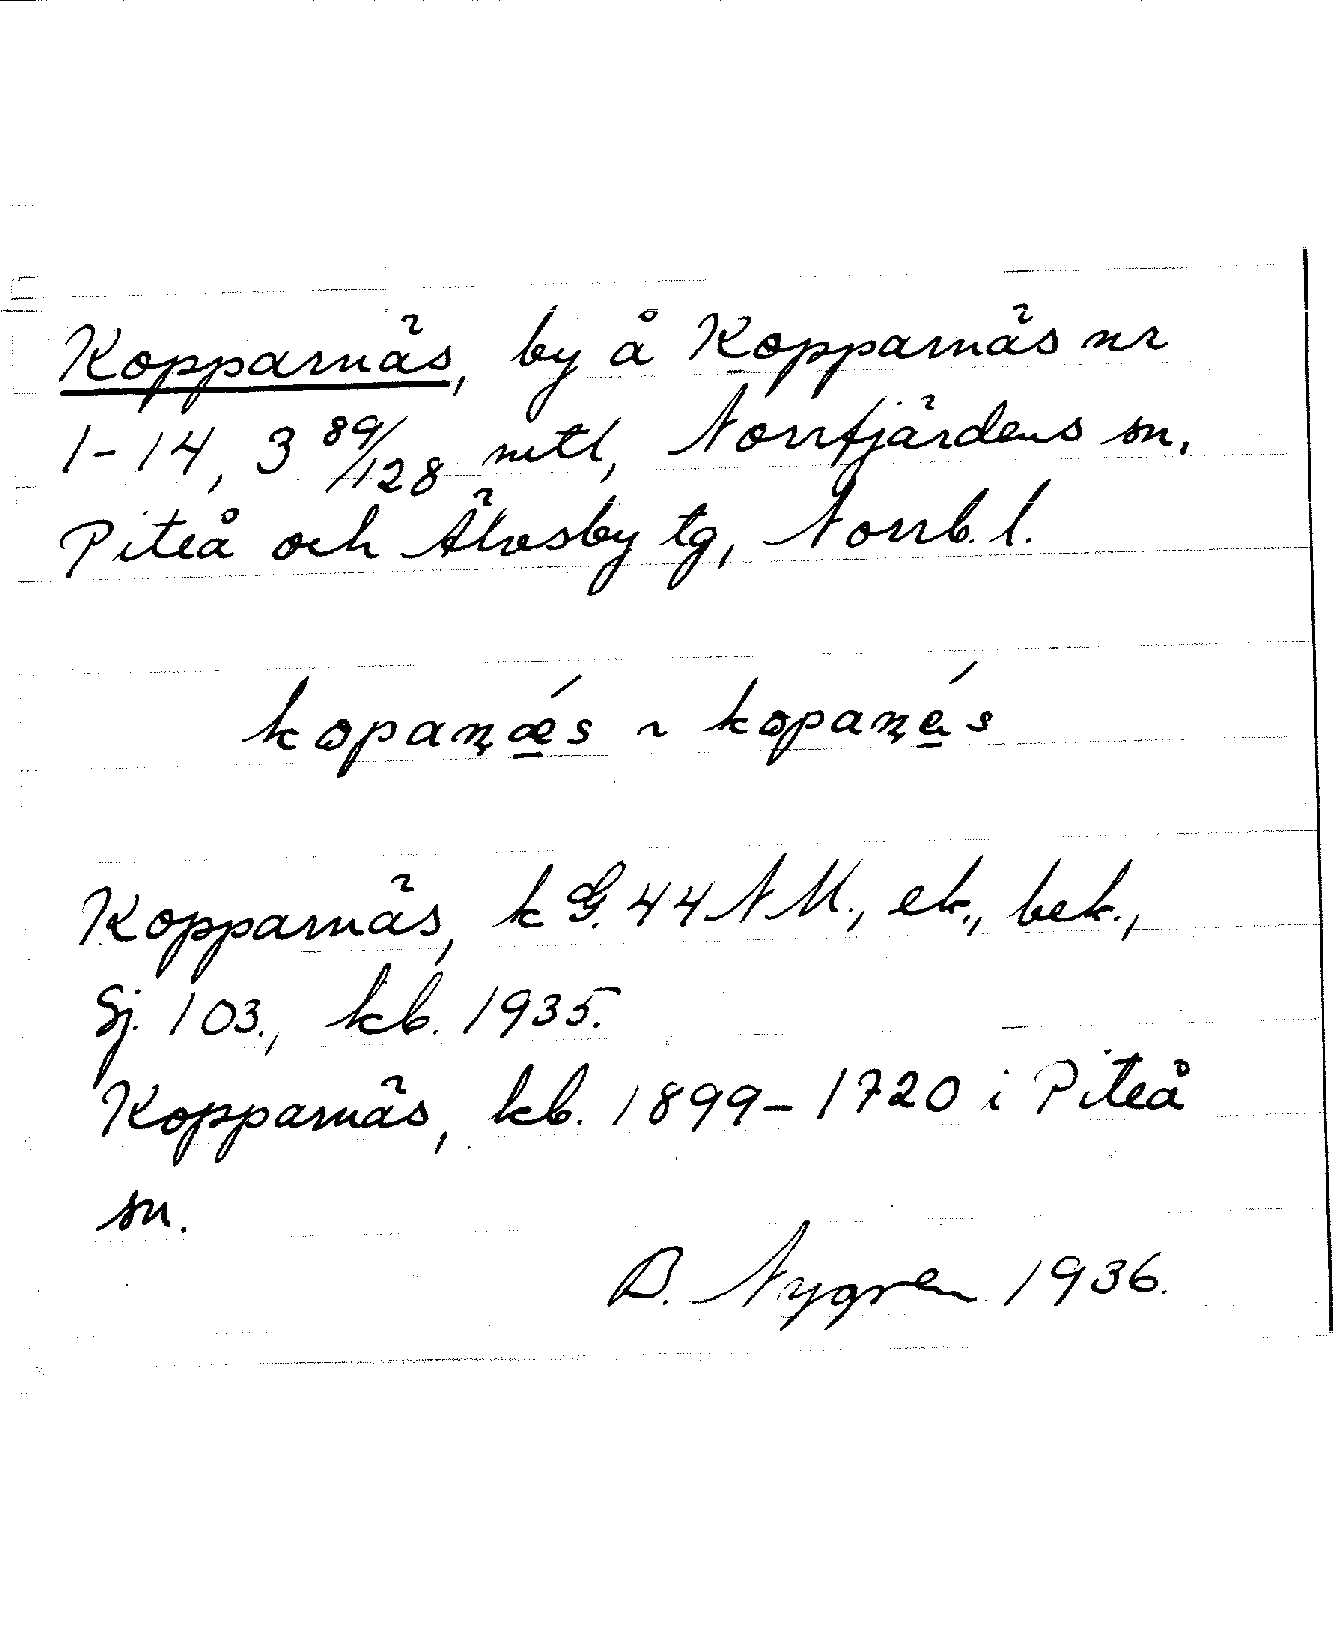 Kopparnäs, by å Kopparnäs nr
1-14, 3 89/128 mtl, Norrfjärdens sn,
Piteå och Älvsby tg, Norrb. l.
kopaṇǽ̲s ~ kopaṇé̲s
Kopparnäs, k G. 44 NM., ek., bek.,
Sj. 103., kb. 1935.
Kopparnäs, kb. 1899-1720 i Piteå
sn.
B. Nygren 1936.